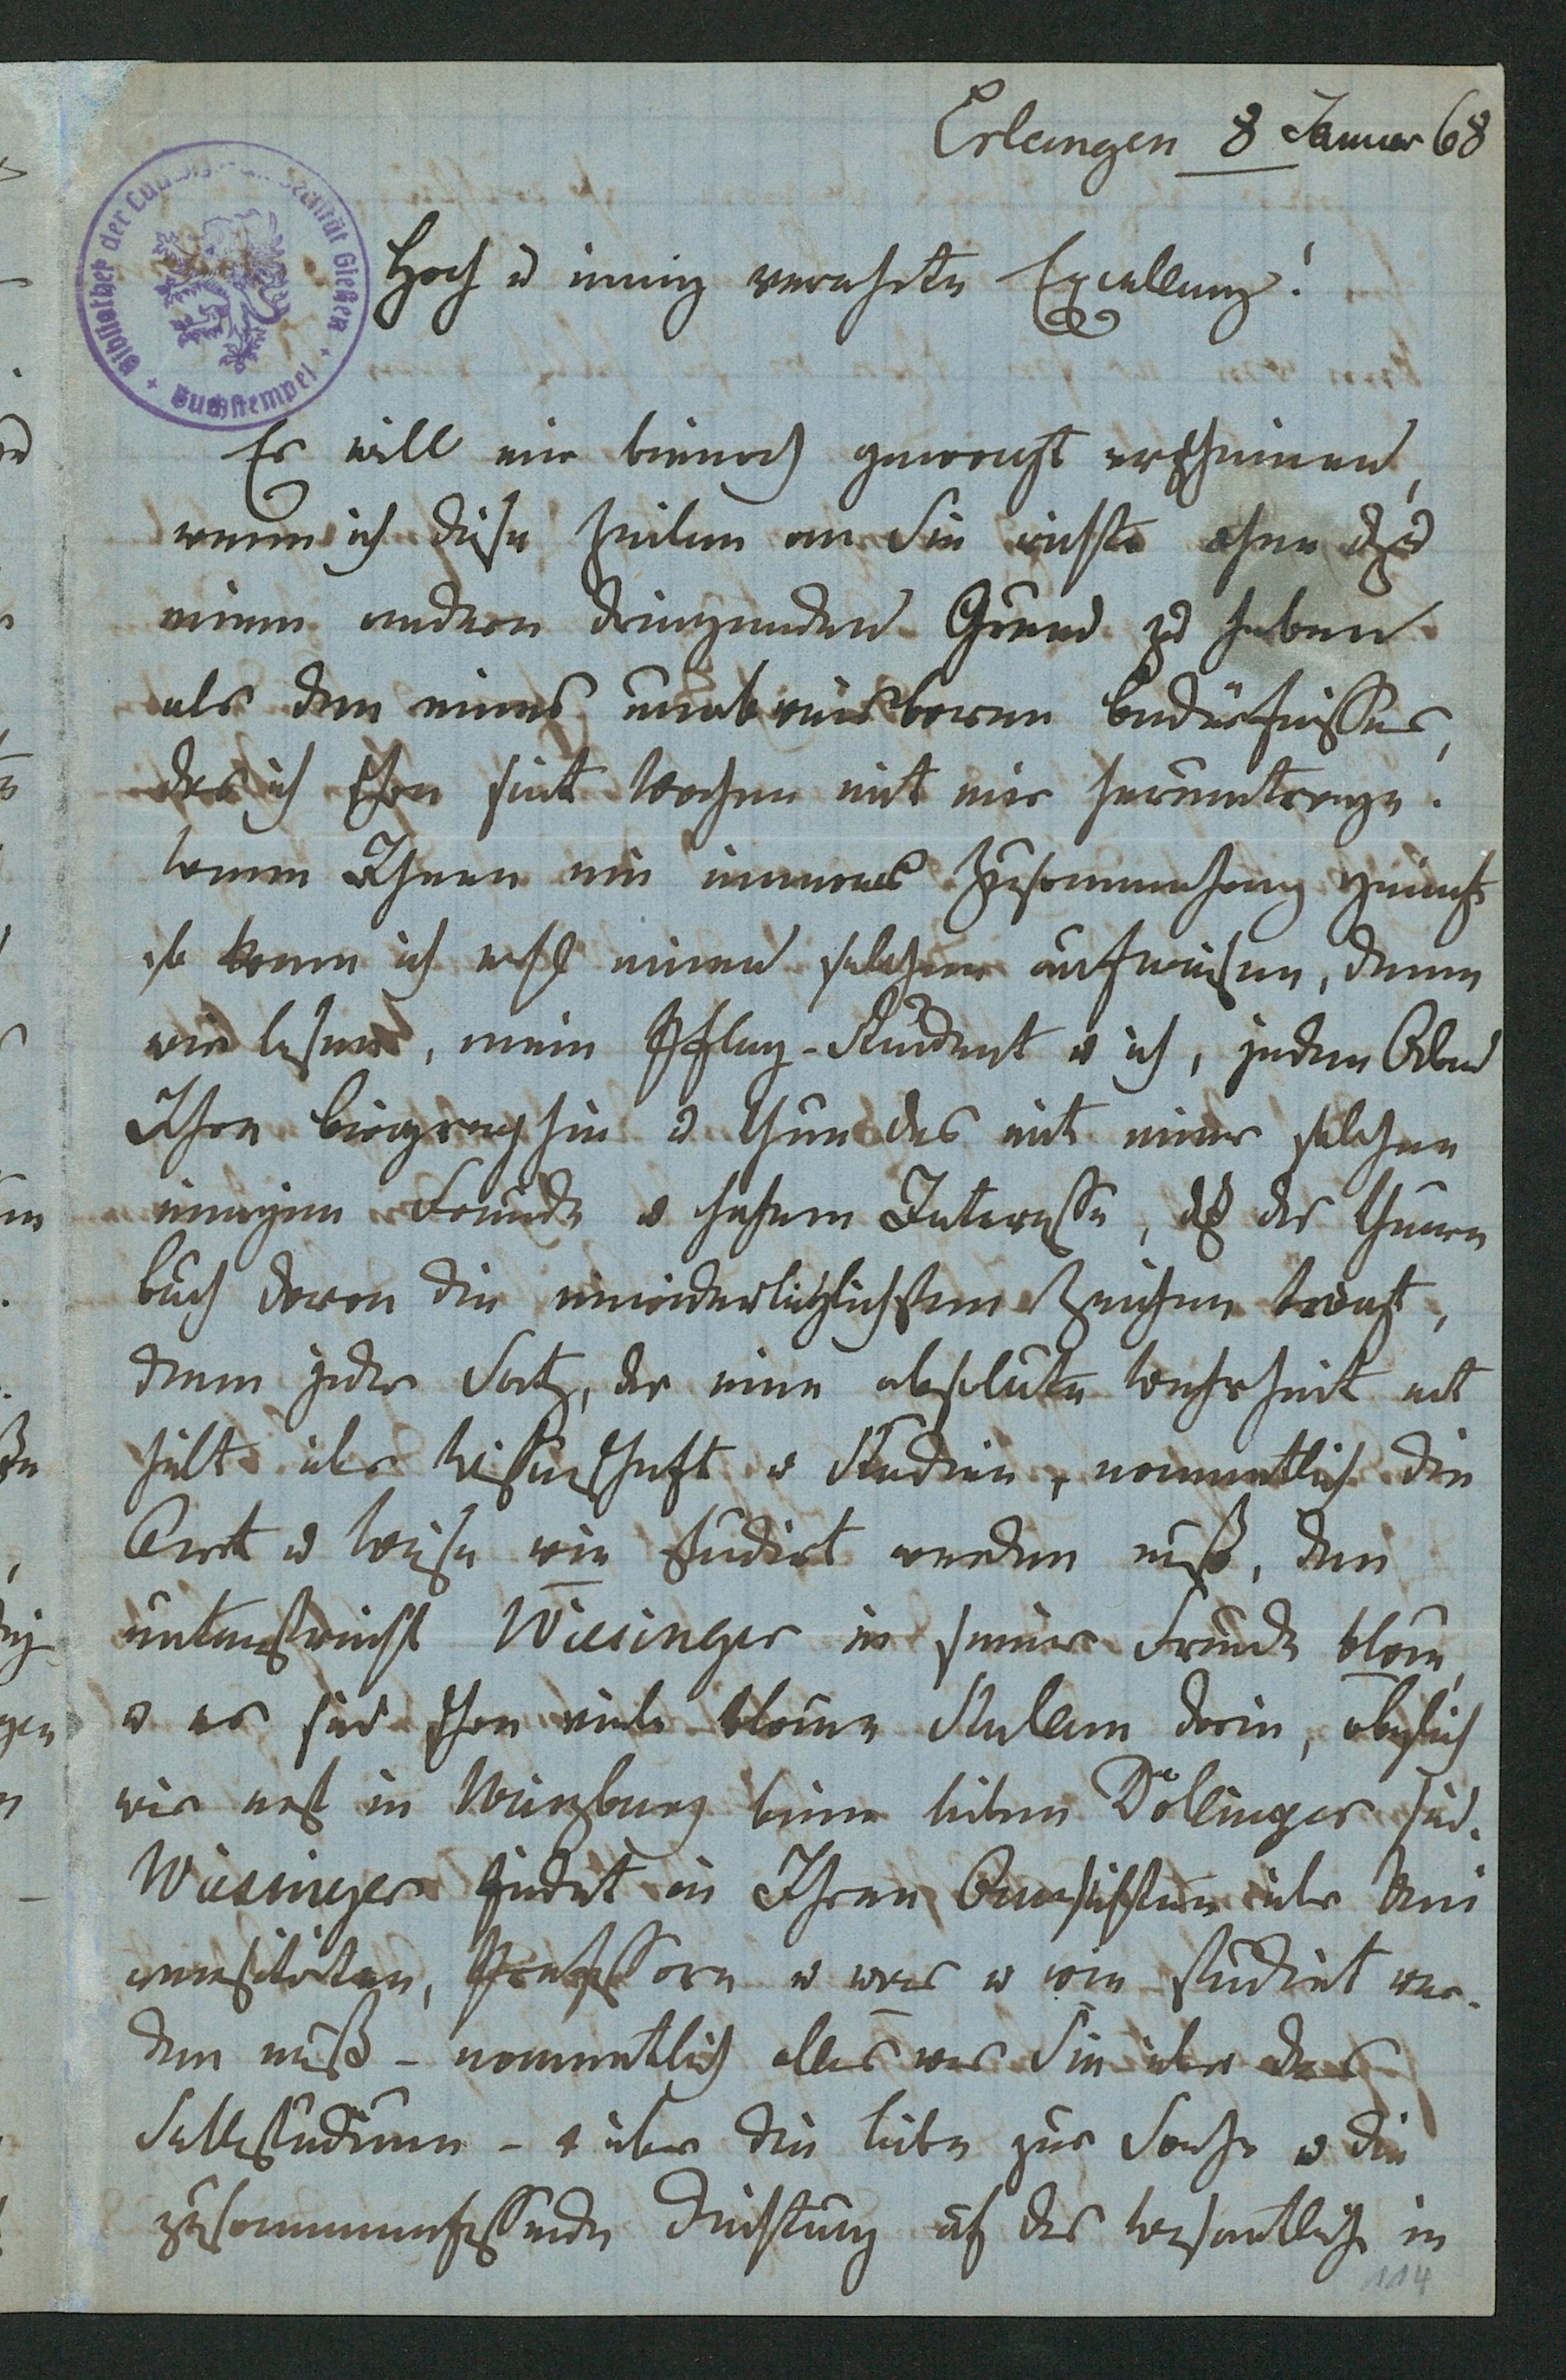 Erlangen 8 Januar 68
Bibliothek der Ludwigs-Universität Gießen
Buchstempel
Hoch u innig verehrte Excellenz!
Es will mir beinah gewagt erscheinen,
wenn ich diese Zeilen an Sie richte ohne dazu
einen andern dringenden Grund zu haben
als den eines unabweisbaren Bedürfnisses,
das ich schon seit Wochen mit mir herumtrage.
Wenn Ihnen ein innerer Zusammenhang genügt
so kann ich wohl einen solchen aufweisen, denn
wir lesen, mein Pfleg-Student u ich, jeden Abend
Ihre Biographie u thun das mit einer solchen
innigen Freude u hohem Interesse, daß das theure
Buch davon die unwiderleglichsten Zeichen trägt,
denn jeder Satz, der eine absolute Wahrheit ent
hält über Wissenschaft u Studien, namentlich die
Art u Weise wie studirt werden muß, den
unterstreicht Wiesinger in seiner Freude blau,
u es sind schon viele blaue Stellen darin, obgleich
wir erst in Würzburg beim lieben Döllinger sind.
Wiesinger findet in Ihren Ansichten über Uni
versitäten, Professoren u was u wie studirt wer-
den muß - namentlich alles was Sie über das
Selbststudium - u über die Liebe zur Sache u die
zusammenfassende Richtung auf das Wesentliche in
114